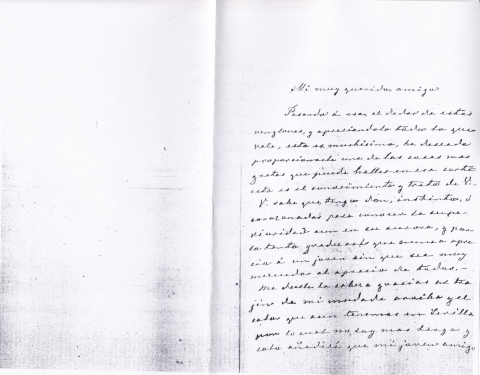 Mi muy querido amigo
Pasando á esa, el dador de estas
renglones, y apreciandolo todo lo que
vale, esto es muchísimo, he deseado
proporcionarle una de las cosas mas
gratas que puede hallar en esa corte
esta es el conocimiento y trato de V.
V. sabe que tengo don, instinto, ó
corazonadas para conocer la supe-
rioridad aun en su aurora, y por
lo tanto que nunca apre-
cia á un joven sin que sea muy
merecedor al aprecio de todos.-
Me duele la cabeza gracias al tra-
jin de mi mudada y el
calor que aun tenemos en Sevilla
por lo cual no soy mas larga y
solo añadiré que mi joven amigo